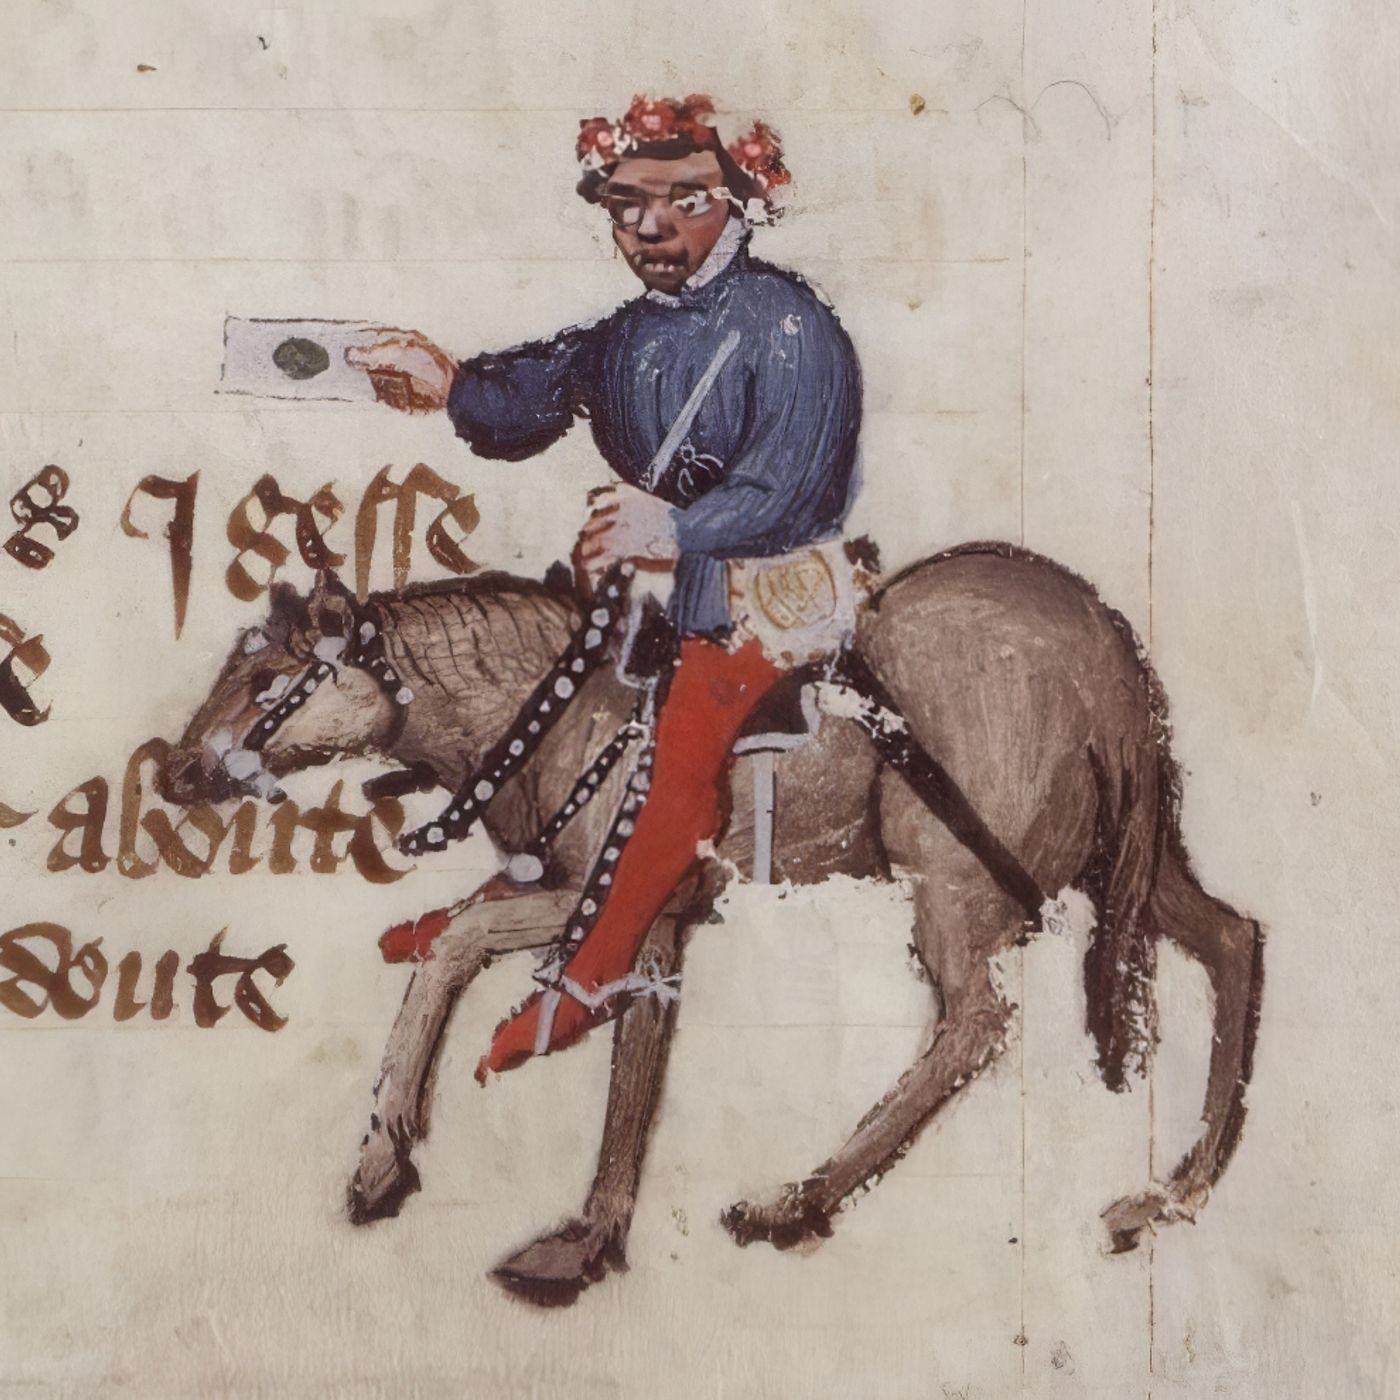 I gesse
aboute
doute